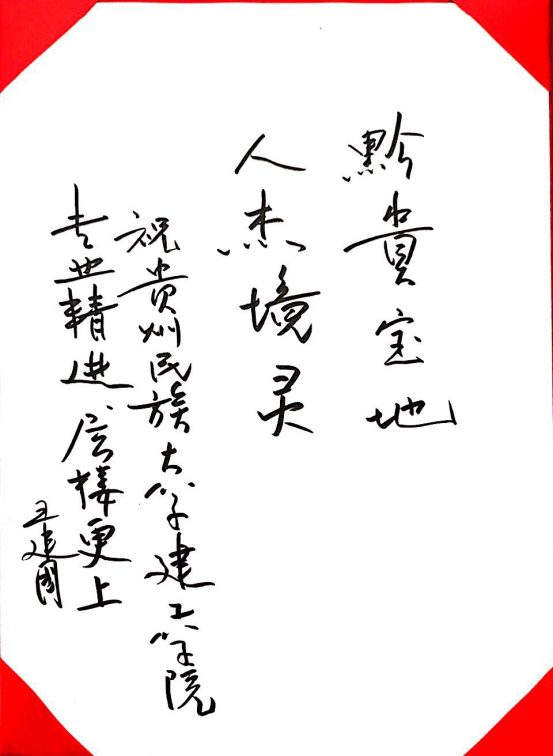 黔貴宝地
人杰境灵
祝贵州民族大学建工学院
专业精进层楼更上
王建國